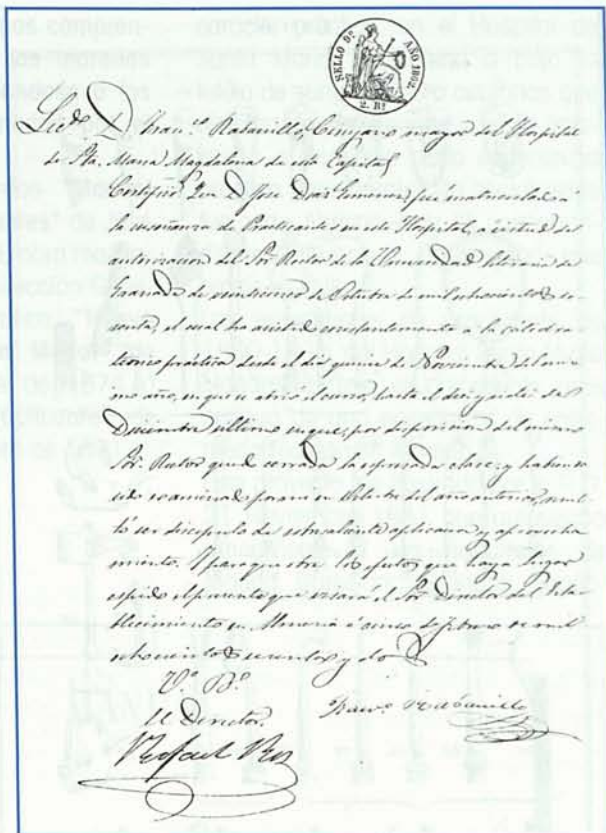 SELLO 9º AÑO 1862.
2. Rs
Licdo. D. Fran.co Rabanillo, Cirujano mayor del Hospital
de Sta. María Magdalena de esta Capital
Certifico: Que D. José Diaz Gimenez, fue matriculado a
la enseñanza de Practicantes en este Hospital, a virtud de
autorizacion del Sor. Rector de la Universidad literaria de
Granada de de Octubre de mil ochocientos se-
senta, el cual ha asistido constantemente a la cátedra
teórico práctica desde el dia quince de Noviembre del mis-
mo año, en que se abrió el curso, hasta el diez y seis de
Diciembre último en que, por disposicion del mismo
Sor. Rector quedó cerrada la espresada clase; y habien
sido examinado por mi en Octubre del año anterior, resul-
tó ser discipulo de sobresaliente aplicacion y aprovecha-
miento. Y para que obre los efectos que haya lugar
espido el presente que visará el Sor. Director del Esta-
blecimiento en Almeria á cinco de febrero de mil
ochocientos sesenta y dos
Vº. Bº.
El Director.
Franco. Rabanillo
Rafael